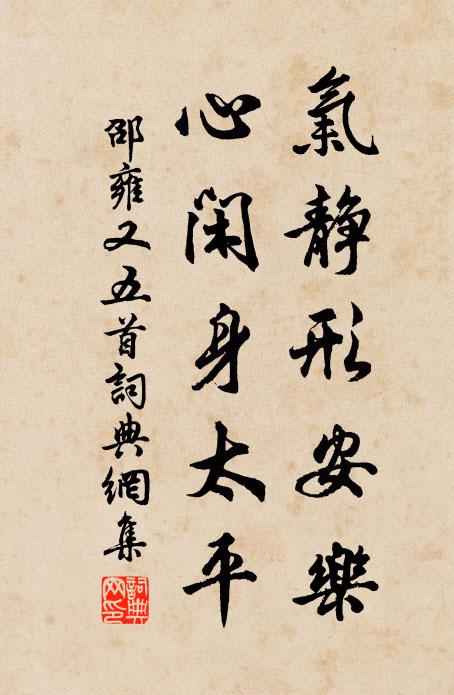 氣靜形安樂
心閑身太平
邵雍又五首詞典網集
詞典
网印